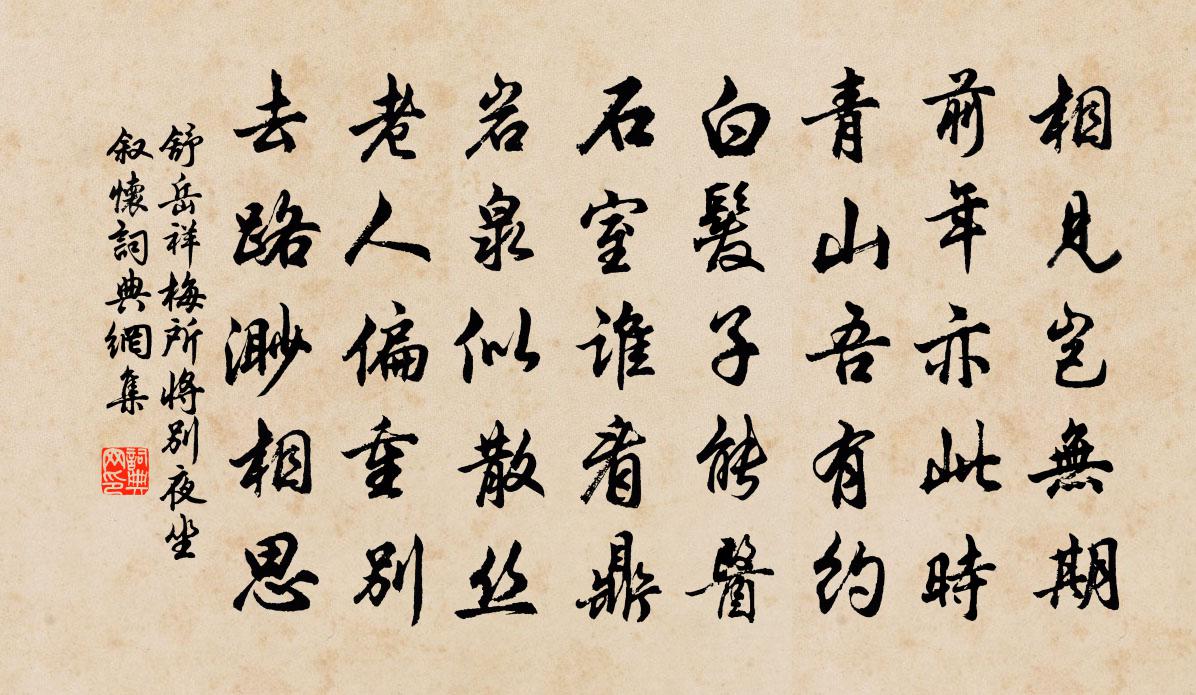 相見豈無期
前年亦此時
青山吾有約
白髮子能醫
石室誰看鼎
岩泉似散丝
老人偏重別
去路渺相思
舒岳祥梅所将别夜坐
叙懷詞典網集
詞典网印